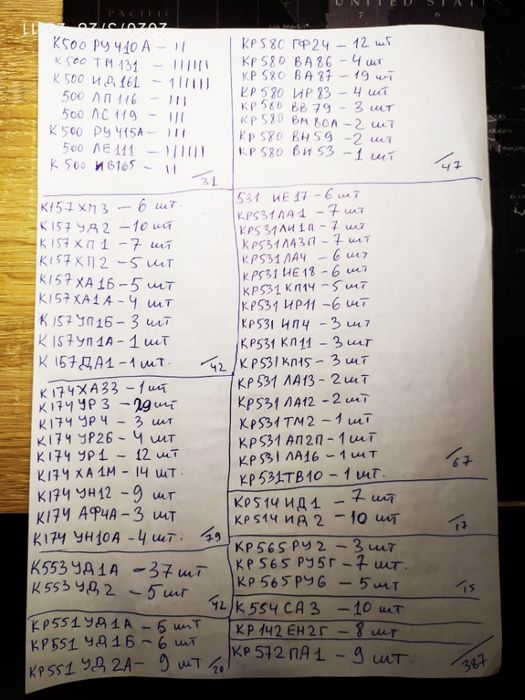 К500 РУ410А – II
К500 ТМ131 – IIIIII
К500 ИД161 – IIIIIII
500 ЛП116 – III
500 ЛС119 – III
К500 РУ415А – III
500 ЛЕ111 – IIIIII
К500 ИВ165 – II
/31
К157ХП3 – 6 шт
К157УД2 – 10 шт
К157ХП1 – 7 шт
К157ХП2 – 5 шт
К157ХА1Б – 5 шт
К157ХА1А – 4 шт
К157УП1Б – 3 шт
К157УП1А – 1 шт
К157ДА1 – 1 шт.
/42
К174ХА33 – 1 шт
К174УР3 – 29 шт
К174УР4 – 3 шт
К174УР2Б – 4 шт
К174УР1 – 12 шт
К174ХА1М – 14 шт.
К174УН12 – 9 шт
К174АФ4А – 3 шт
К174УН10А – 4 шт.
/79
К553УД1А – 37 шт
К553УД2 – 5 шт
/42
КР551УД1А – 5 шт
КР551УД1Б – 6 шт
КР551УД2А – 9 шт
/20
КР580ГФ24 – 12 шт
КР580ВА86 – 4 шт
КР580ВА87 – 19 шт
КР580ИР83 – 4 шт
КР580ВВ79 – 3 шт
КР580ВМ80А – 2 шт
КР580ВН59 – 2 шт
КР580ВИ53 – 1 шт
/47
531 ИЕ17 – 6 шт
КР531ЛА1 – 7 шт
КР531ЛИ1П – 7 шт
КР531ЛА3П – 7 шт
КР531ЛА4 – 6 шт
КР531ИЕ18 – 6 шт
КР531КП14 – 5 шт
КР531ИР11 – 6 шт
КР531ИП4 – 3 шт
КР531КП11 – 3 шт
КР531КП15 – 3 шт
КР531ЛА13 – 2 шт
КР531ЛА12 – 2 шт
КР531ТМ2 – 1 шт
КР531АП2П – 1 шт
КР531ЛА16 – 1 шт
КР531ТВ10 – 1 шт.
/67
КР514ИД1 – 7 шт
КР514ИД2 – 10 шт
/17
КР565РУ2 – 3 шт
КР565РУ5Г – 7 шт.
КР565РУ6 – 5 шт
/15
К554СА3 – 10 шт
КР142ЕН2Г – 8 шт
КР572ПА1 – 9 шт.
/387